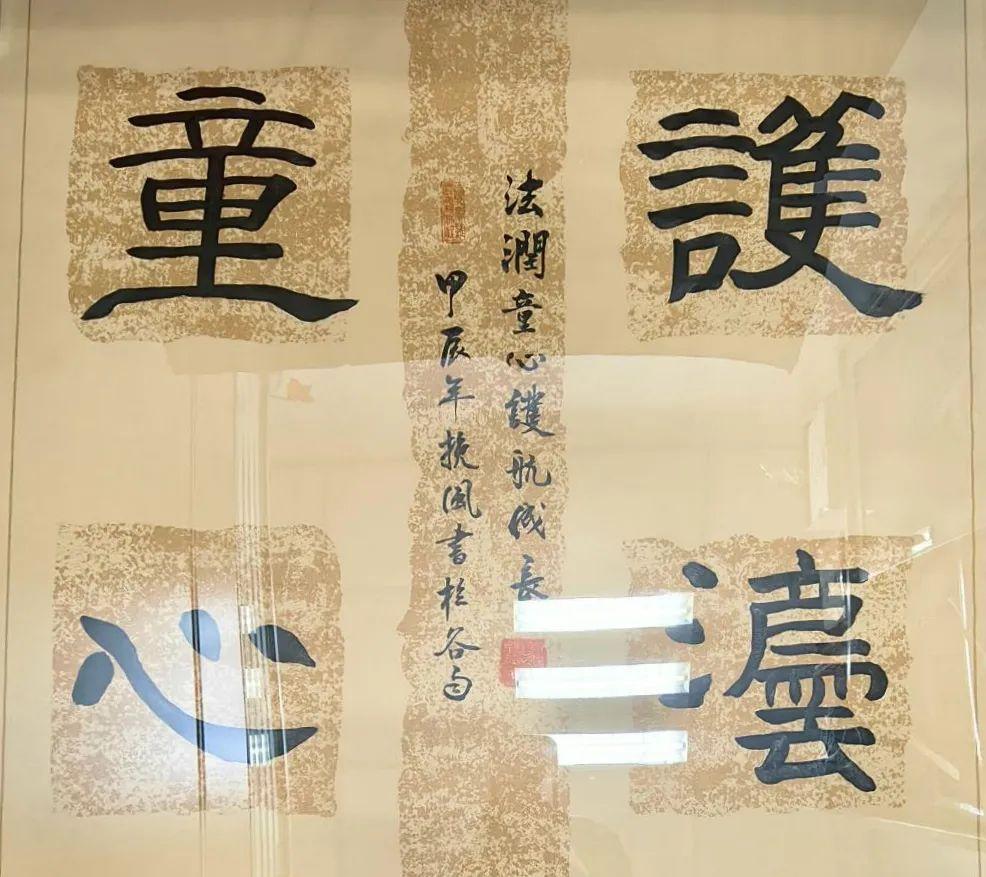 護灋
法潤童心護航成長
甲辰年挽風書於谷雨
童心